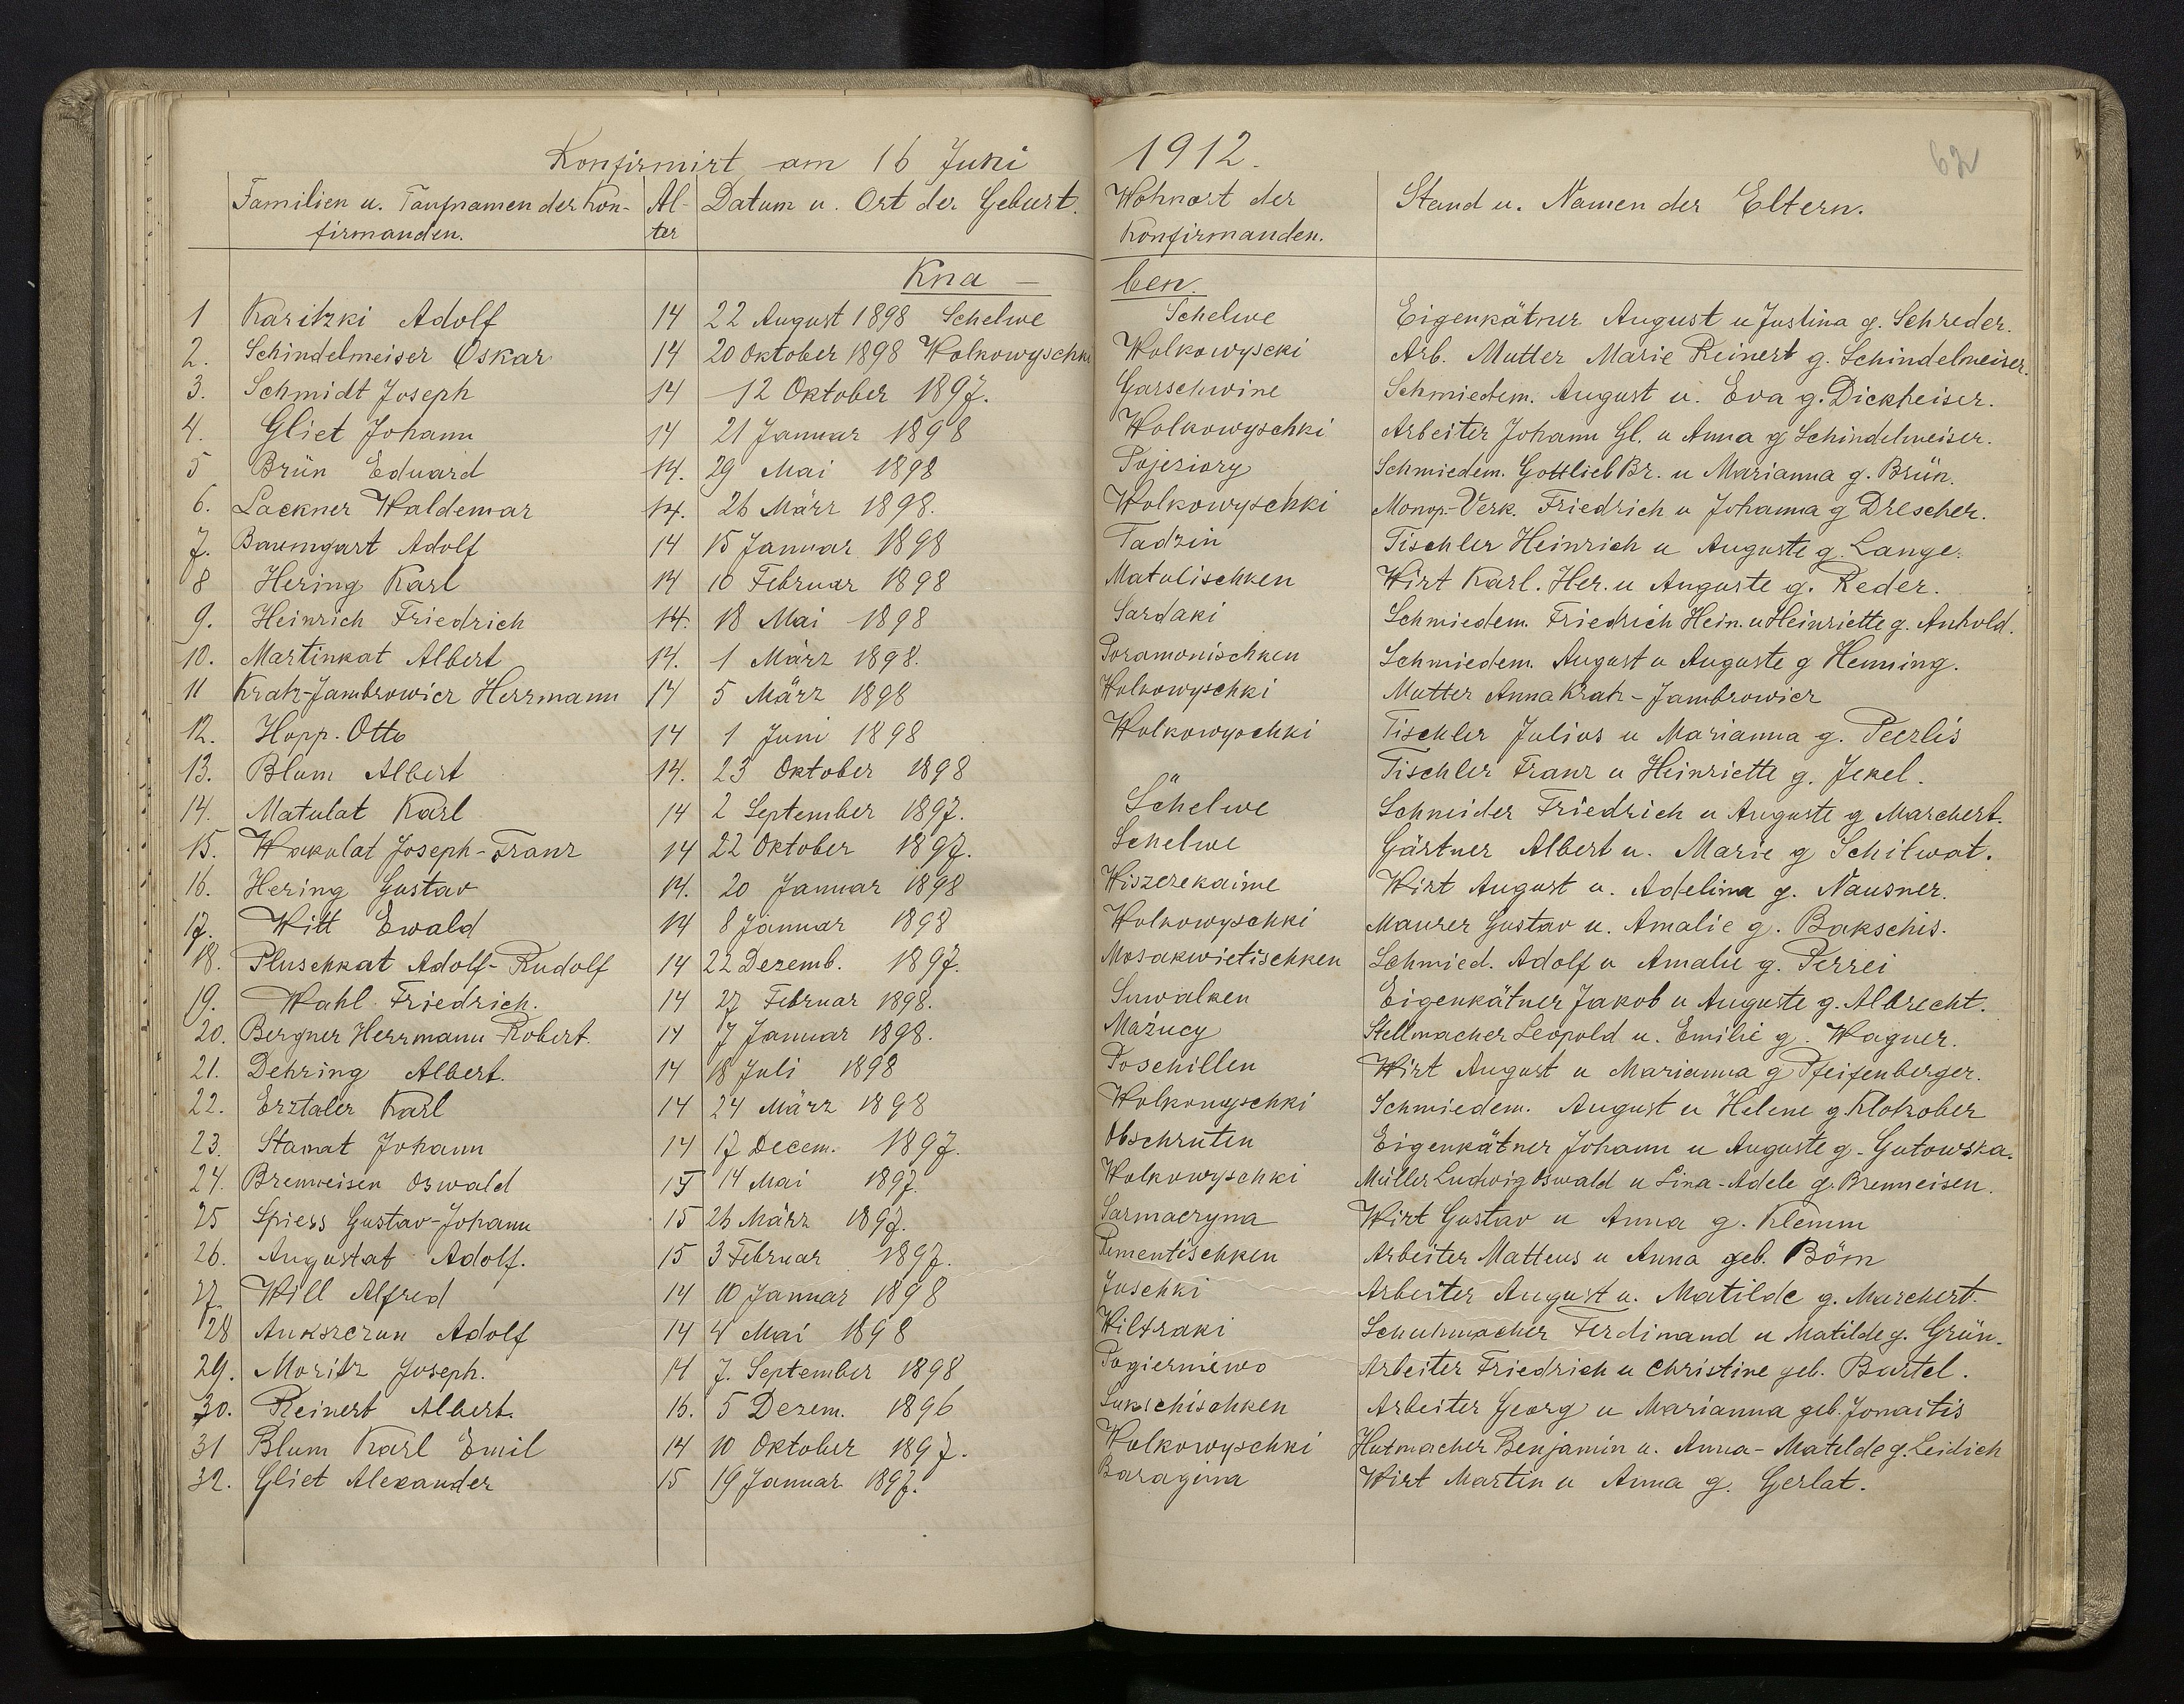 Konfirmirt am 16 Juni 1912.
62
Familien u. Taufnamen der Kon- Al- Datum u. Ort der Geburt. Wohnort der Stand u. Namen der Eltern.
firmanden. ter Konfirmanden.
Kna - ben.
1 Karitzki Adolf 14 22 August 1898 Schelwe Schelwe Eigenkätner August u Justina g. Schreder.
2. Schindelmeiser Oskar 14 20 Oktober 1898 Wolkowyschki Wolkowyscki Arb. Mutter Marie Reinert g. Schindelmeiser.
3. Schmidt Joseph 14 12 Oktober 1897. Garschwine Schmiedem. August u. Eva g. Dickheiser.
4. Gliet Johann 14 21 Januar 1898 Wolkowyschki Arbeiter Johann Gl. u Anna g Schindelmeiser.
5 Brün Eduard 14. 29 Mai 1898 Pojeziory Schmiedem. Gottlieb Br. u Marianna g. Brün.
6. Lackner Waldemar 14. 26 März 1898. Wolkowyschki Monop.-Verk. Friedrich u Johanna g Drescher.
7. Baumgart Adolf 14 15 Januar 1898 Tadzin Tischler Heinrich u Auguste g. Lange.
8 Hering Karl 14 10 Februar 1898 Matulischken Wirt Karl. Her. u Auguste g. Reder.
9. Heinrich Friedrich 14. 18 Mai 1898 Sardaki Schmiedem. Friedrich Hein. u Heinriette g. Anhold.
10. Martinkat Albert 14. 1 März 1898. Poramonischken Schmiedem. August u Auguste g Henning.
11 Kratz-Jambrowicz Herrmann 14 5 März 1898 Wolkowyschki Mutter Anna Kratz-Jambrowicz
12. Hopp. Otto 14 1 Juni 1898 Wolkowyschki Tischler Julius u Marianna g. Peczlis
13. Blum Albert 14. 23 Oktober 1898 " Tischler Franz u Heinriette g. Jekel.
14. Matulat Karl 14 2 September 1897. Schelwe Schneider Friedrich u Auguste g Marchert.
15. Wakulat Joseph-Franz 14 22 Oktober 1897. Schelwe Gärtner Albert u. Marie g Schilwat.
16. Hering Gustav 14. 20 Januar 1898 Wiszerekaime Wirt August u. Adelina g. Nausner.
17. Witt Ewald 14 8 Januar 1898 Wolkowyschki Maurer Gustav u. Amalie g. Bakschis.
18. Pluschkat Adolf-Rudolf 14 22 Dezemb. 1897. Mosakwietischken Schmied. Adolf u Amalie g. Perrei
19. Wahl Friedrich. 14 27 Februar 1898. Suwalken Eigenkätner Jakob u Auguste g. Albrecht.
20. Bergner Herrmann Robert. 14 7 Januar 1898. Mażucy Stellmacher Leopold u. Emilie g. Wagner.
21. Dehring Albert. 14 18 Juli 1898 Poschillen Wirt August u Marianna g Pfeifenberger.
22. Erztaler Karl 14 24 März 1898 Wolkowyschki Schmiedem. August u Helene g. Klokober
23. Stanat Johann 14 17 Decem. 1897. Obschruten Eigenkätner Johann u Auguste g. Gutowska.
24. Brenneisen Oswald 15 14 Mai 1897. Wolkowyschki Müller Ludwig Oswald u Lina-Adele g. Brenneisen.
25 Spiess Gustav-Johann 15 26 März 1897. Sarmacryna Wirt Gustav u Anna g. Klemm
26. Augustat Adolf. 15 3 Februar 1897. Pementischken Arbeiter Matteus u Anna geb. Böm
27. Will Alfred 14 10 Januar 1898 Juschki Arbeiter August u. Matilde g. Marchert.
28 Aukszczun Adolf 14 4 Mai 1898 Wiltraki Schuhmacher Ferdinand u Matilde g. Grün.
29. Moritz Joseph. 14 7. September 1898 Pogierniewo Arbeiter Friedrich u Christine geb. Bartel.
30. Reinert Albert. 16. 5 Dezem. 1896 Sukschischken Arbeiter Georg u Marianna geb. Jonaitis
31 Blum Karl Emil 14 10 Oktober 1897. Wolkowyschki Hutmacher Benjamin u. Anna-Matilde g. Leidich
32. Gliet Alexander 15 19 Januar 1897. Baragina Wirt Martin u Anna g. Gerlat.